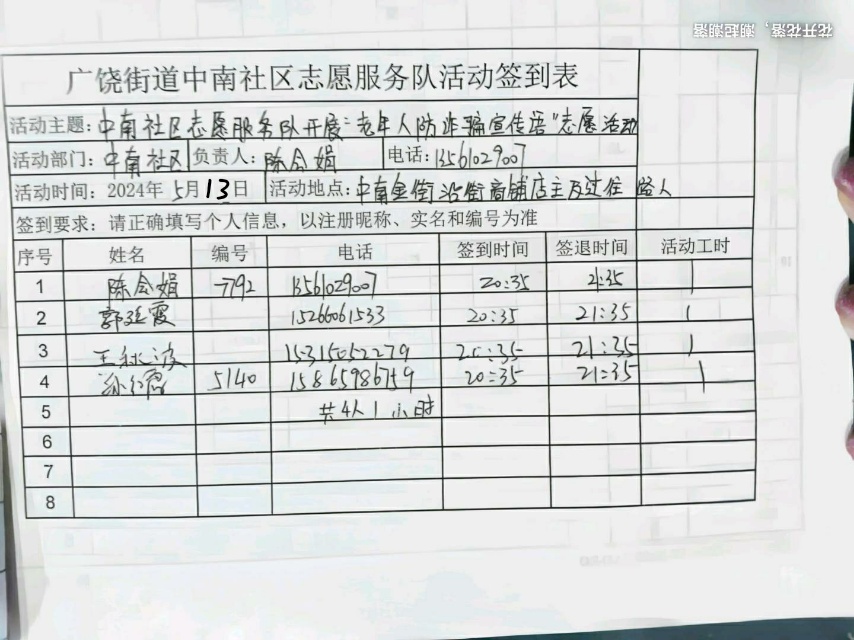 花开花落，潮起潮落
广饶街道中南社区志愿服务队活动签到表
活动主题：中南社区志愿服务队开展"老年人防诈骗宣传语"志愿活动
活动部门：中南社区 负责人：陈会娟 电话：13561029007
活动时间：2024年5月13日 活动地点：中南金街沿街商铺店主及过往路人
签到要求：请正确填写个人信息，以注册昵称、实名和编号为准
序号 姓名 编号 电话 签到时间 签退时间 活动工时
1 陈会娟 7792 13561029007 20:35 21:35 1
2 郭延霞 15266061533 20:35 21:35 1
3 王秋波 15315052279 20:35 21:35 1
4 孙红霞 5140 15865986759 20:35 21:35 1
5 共4人1小时
6
7
8